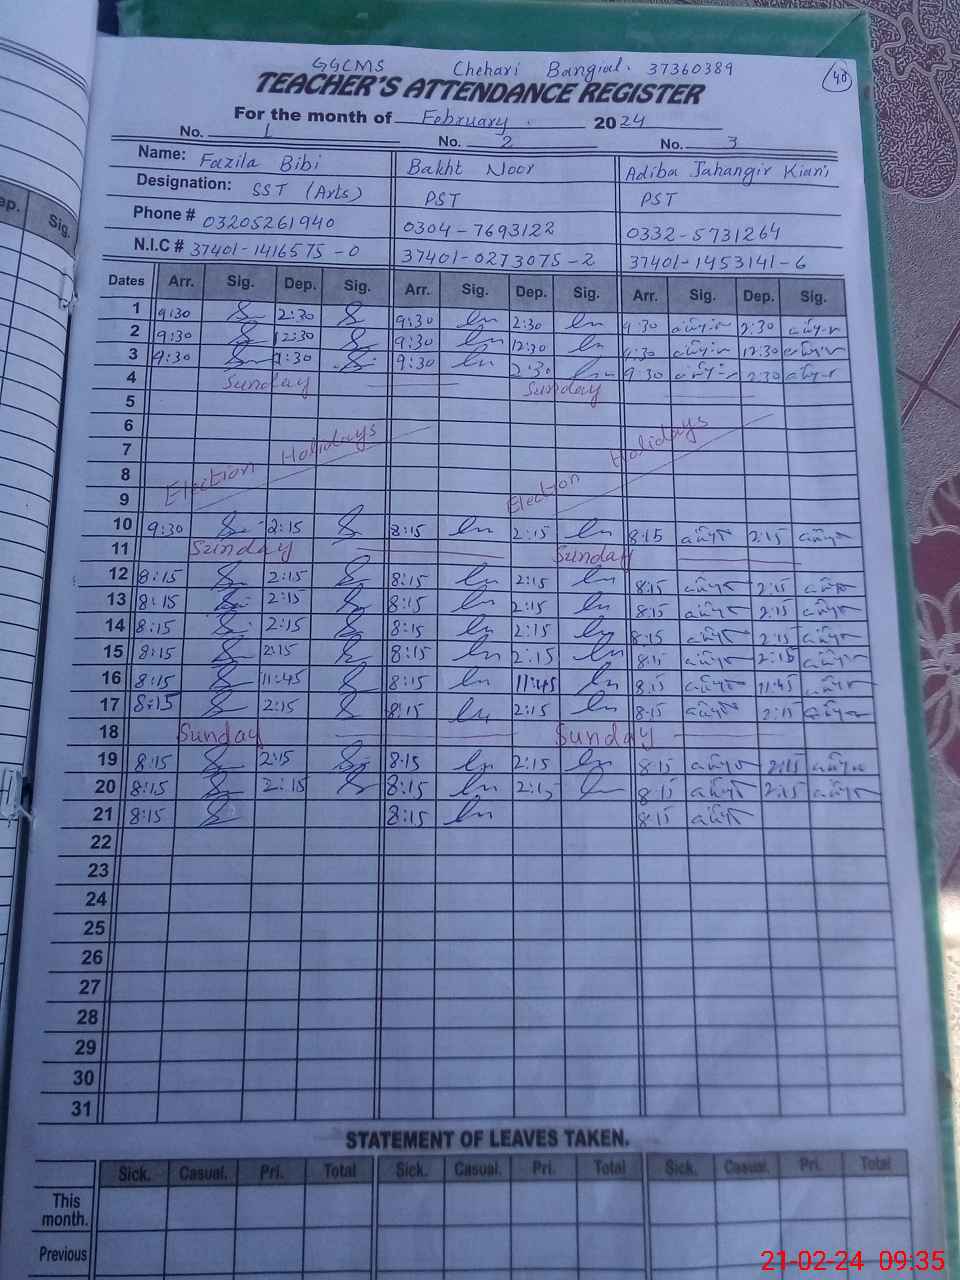 GGCMS Chehari Bangial. 37360389 40
TEACHER'S ATTENDANCE REGISTER
For the month of February. 2024
No. 1 No. 2 No. 3
Name: Fazila Bibi Bakht Noor Adiba Jahangir Kiani
Designation: SST (Arts) PST PST
Phone # 03205261940 0304-7693122 0332-5731264
N.I.C # 37401-1416575-0 37401-0273075-2 37401-1453141-6
ep. Sig.
Dates Arr. Sig. Dep. Sig. Arr. Sig. Dep. Sig. Arr. Sig. Dep. Sig.
1 9:30 2:30 9:30 2:30 9:30 2:30
2 9:30 12:30 9:30 12:30 9:30 12:30
3 9:30 2:30 9:30 2:30 9:30 2:30
4 Sunday Sunday
5
6
7 Election Holidays Election Holidays
8
9
10 9:30 2:15 8:15 2:15 8:15 2:15
11 Sunday Sunday
12 8:15 2:15 8:15 2:15 8:15 2:15
13 8:15 2:15 8:15 2:15 8:15 2:15
14 8:15 2:15 8:15 2:15 8:15 2:15
15 8:15 2:15 8:15 2:15 8:15 2:15
16 8:15 11:45 8:15 11:45 8:15 11:45
17 8:15 2:15 8:15 2:15 8:15 2:15
18 Sunday Sunday
19 8:15 2:15 8:15 2:15 8:15 2:15
20 8:15 2:15 8:15 2:15 8:15 2:15
21 8:15 8:15 8:15
22
23
24
25
26
27
28
29
30
31
STATEMENT OF LEAVES TAKEN.
Sick. Casual. Pri. Total Sick. Casual. Pri. Total Sick. Casual. Pri. Total
This month.
Previous
21-02-24 09:35